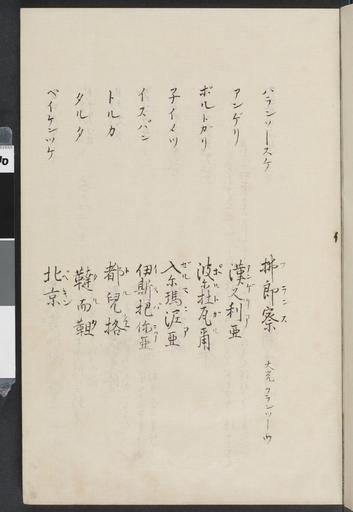 ハランソースケ 拂郎察 フランス
アンゲリ 漢乂利亜 アンゲリア
ボルトガリ 波尓杜瓦爾 ポルトガル
子イメツ 入尓瑪泥亜 ゼルマニア
イスパン 伊斯把你亜 イスパニア
トルカ 都兒格 トルコ
タルタ 韃而靼 タルタ
ペイケンツケ 北京 ペキン